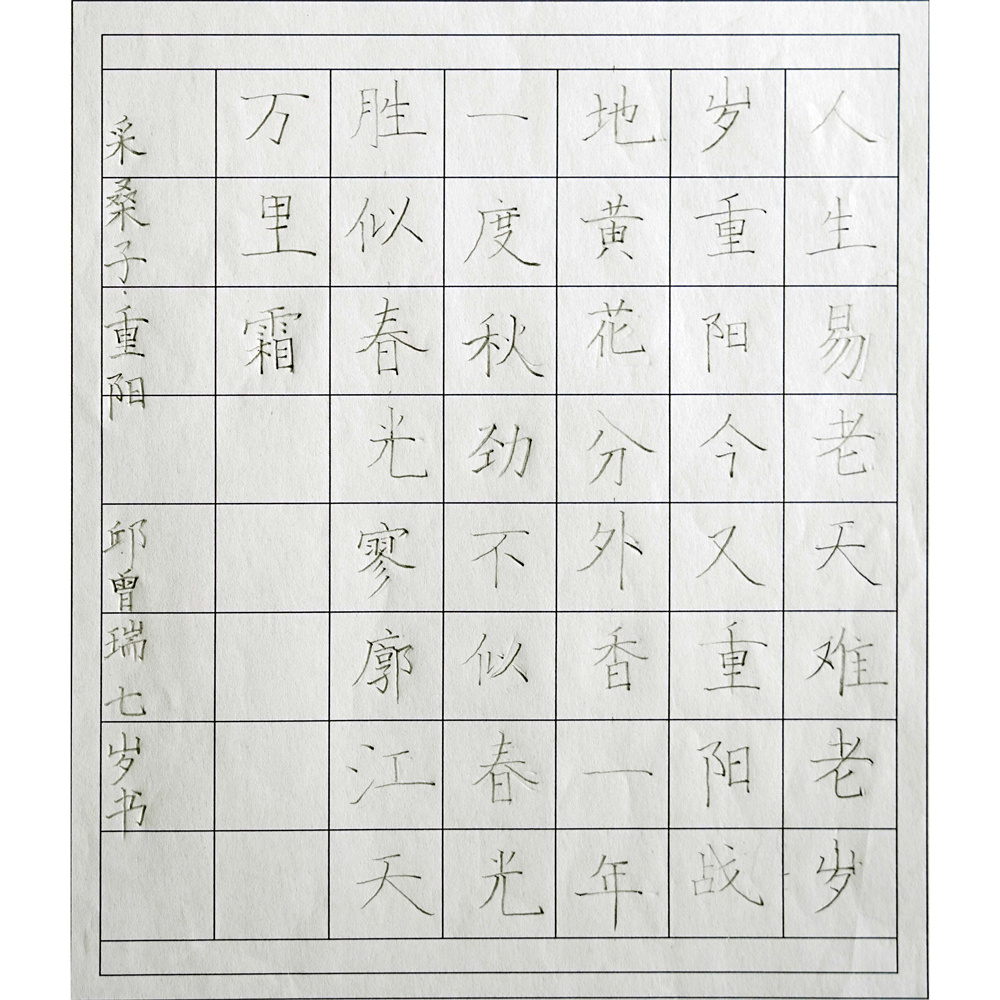 人生易老天难老岁
岁重阳今又重阳战
地黄花分外香一年
一度秋劲不似春光
胜似春光寥廓江天
万里霜
采桑子·重阳 邱曾瑞七岁书